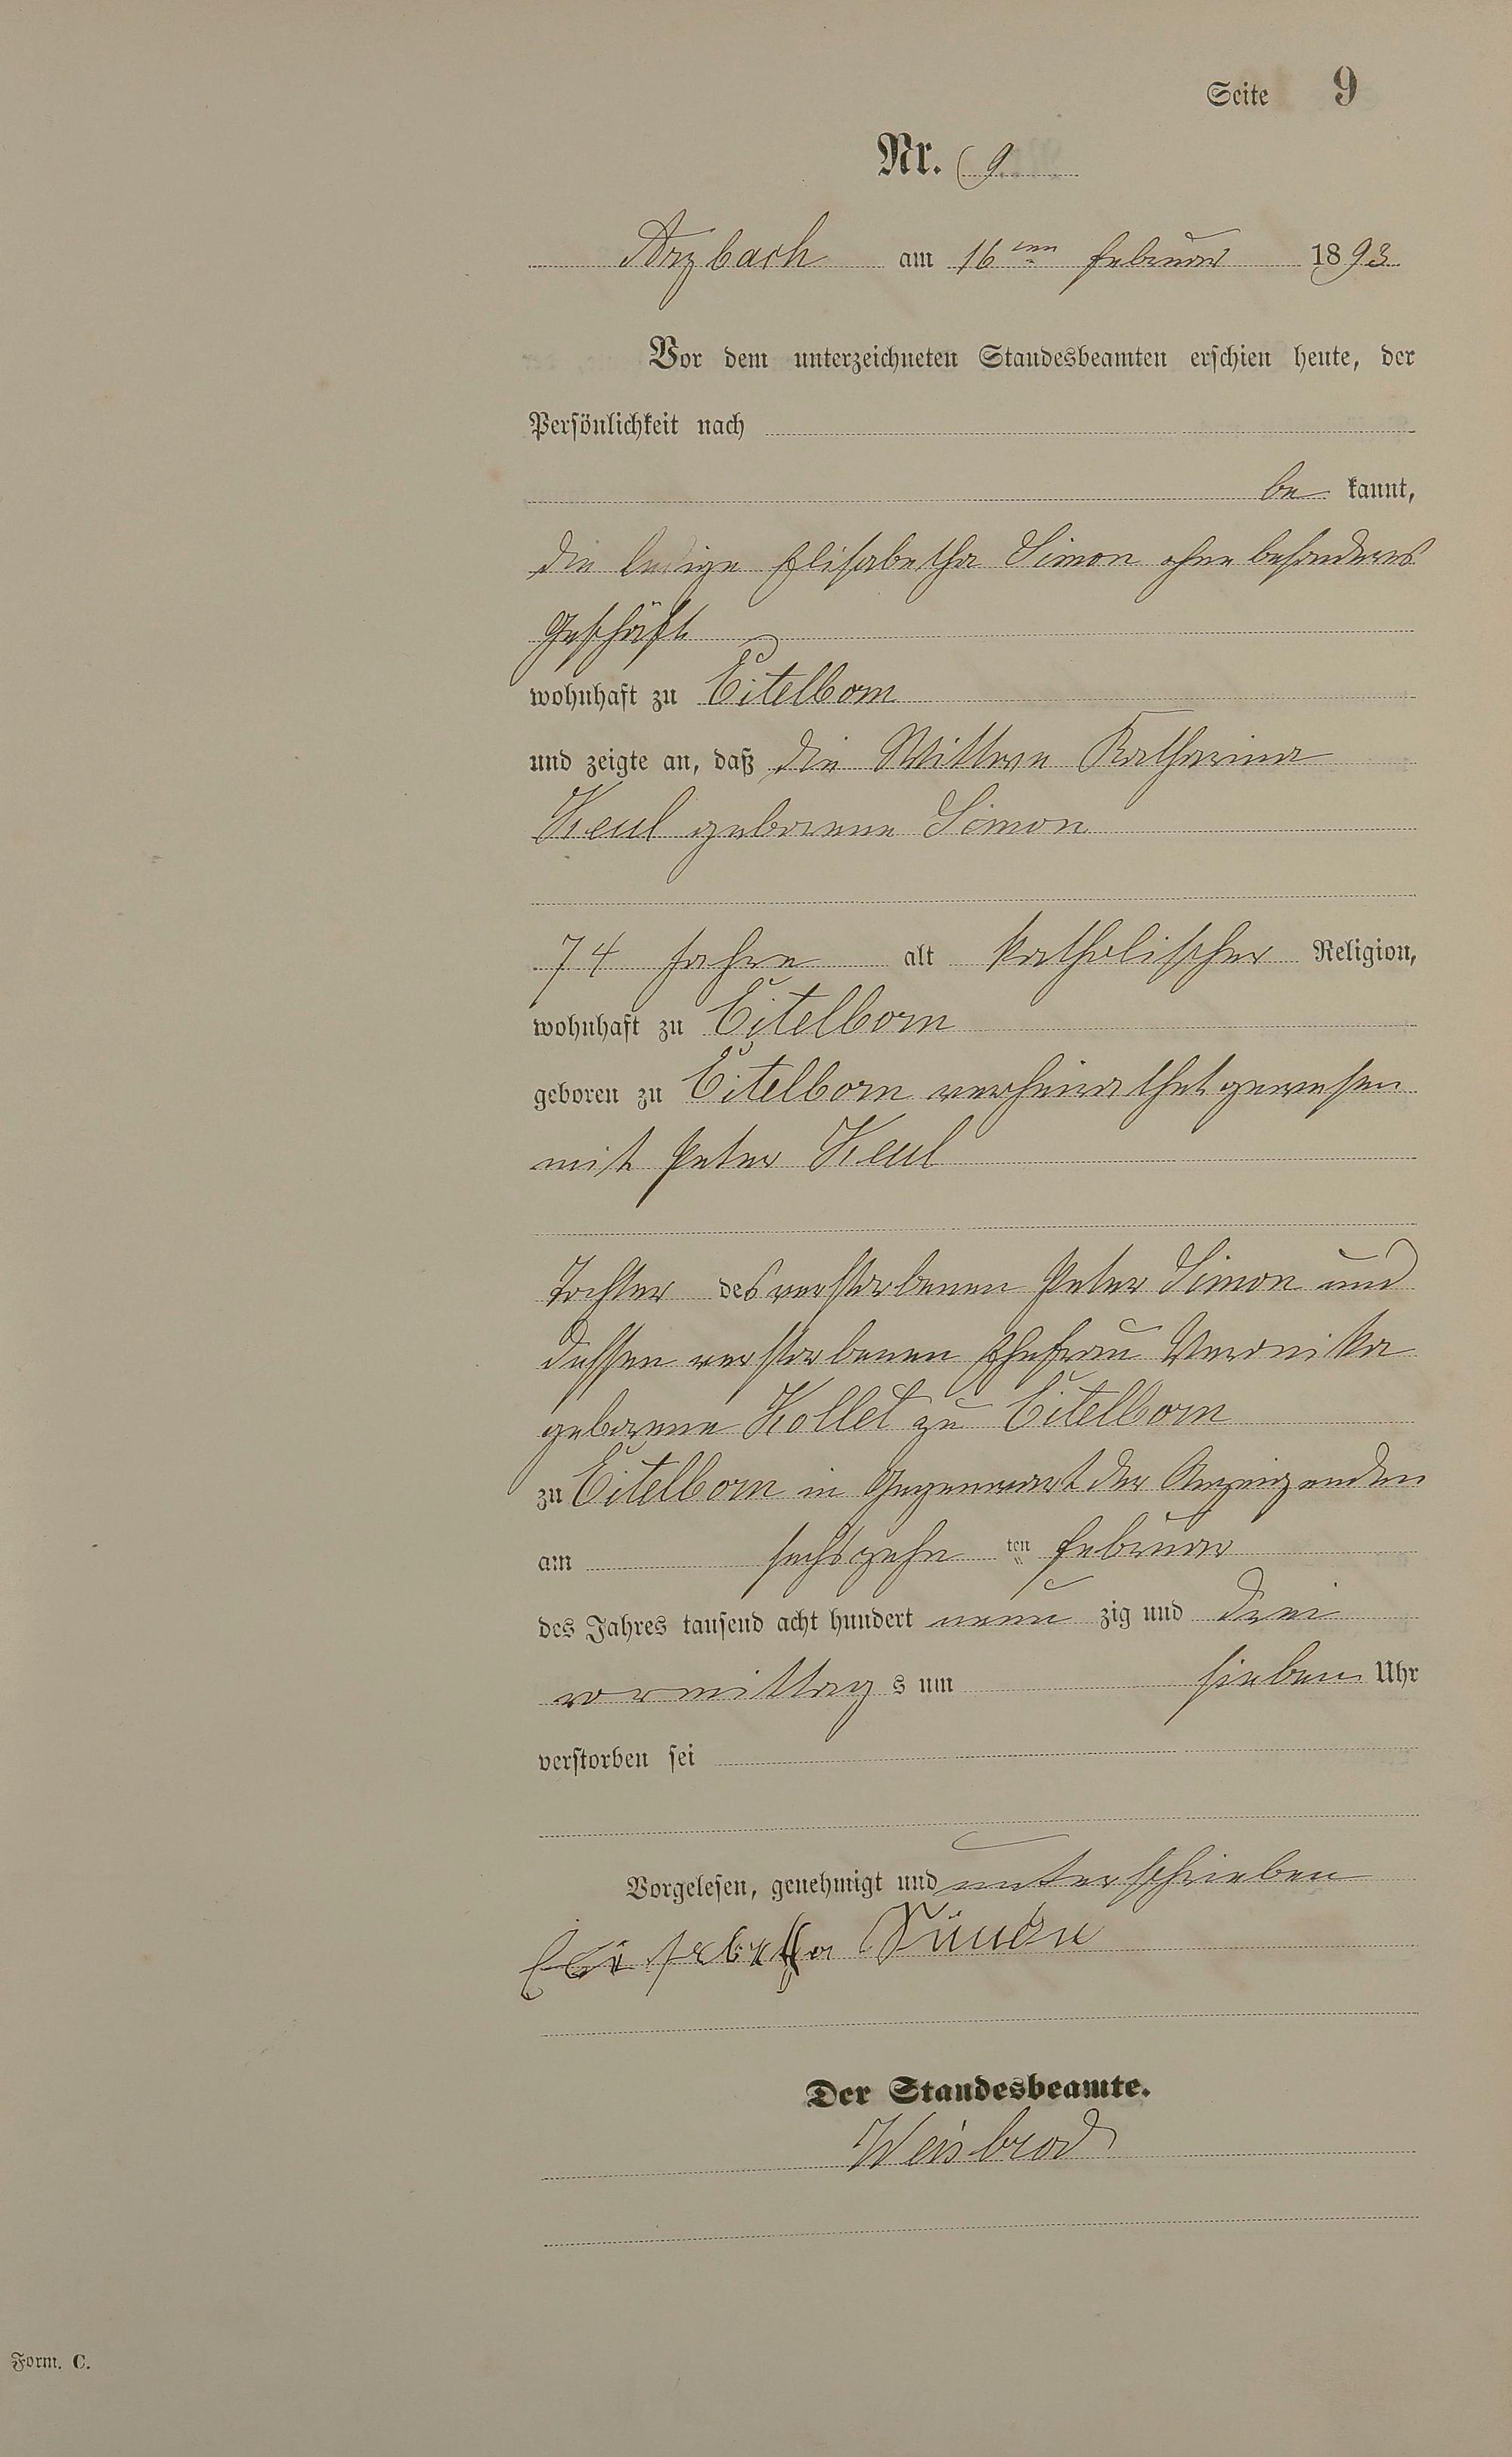 Seite 9
Nr. 9
Arzbach am 16ten Februar 1893
Vor dem unterzeichneten Standesbeamten erschien heute, der
Persönlichkeit nach
be kannt,
die ledige Elisabetha Simon ohne besonderes
Geschäft
wohnhaft zu Eitelborn
und zeigte an, daß die Wittwe Katharina
Keul geborene Simon
74 Jahre alt katholischer Religion,
wohnhaft zu Eitelborn
geboren zu Eitelborn verheirathet gewesen
mit Peter Keul
Tochter des verstorbenen Peter Simon und
dessen verstorbenen Ehefrau Veronika
geborene Kollet zu Eitelborn
zu Eitelborn in Gegenwart der Anzeigenden
am sechszehn ten Februar
des Jahres tausend acht hundert neun zig und drei
vormittag s um sieben Uhr
verstorben sei
Vorgelesen, genehmigt und unterschrieben
Elisabetha Simon
Der Standesbeamte.
Weisbrod
Form. C.